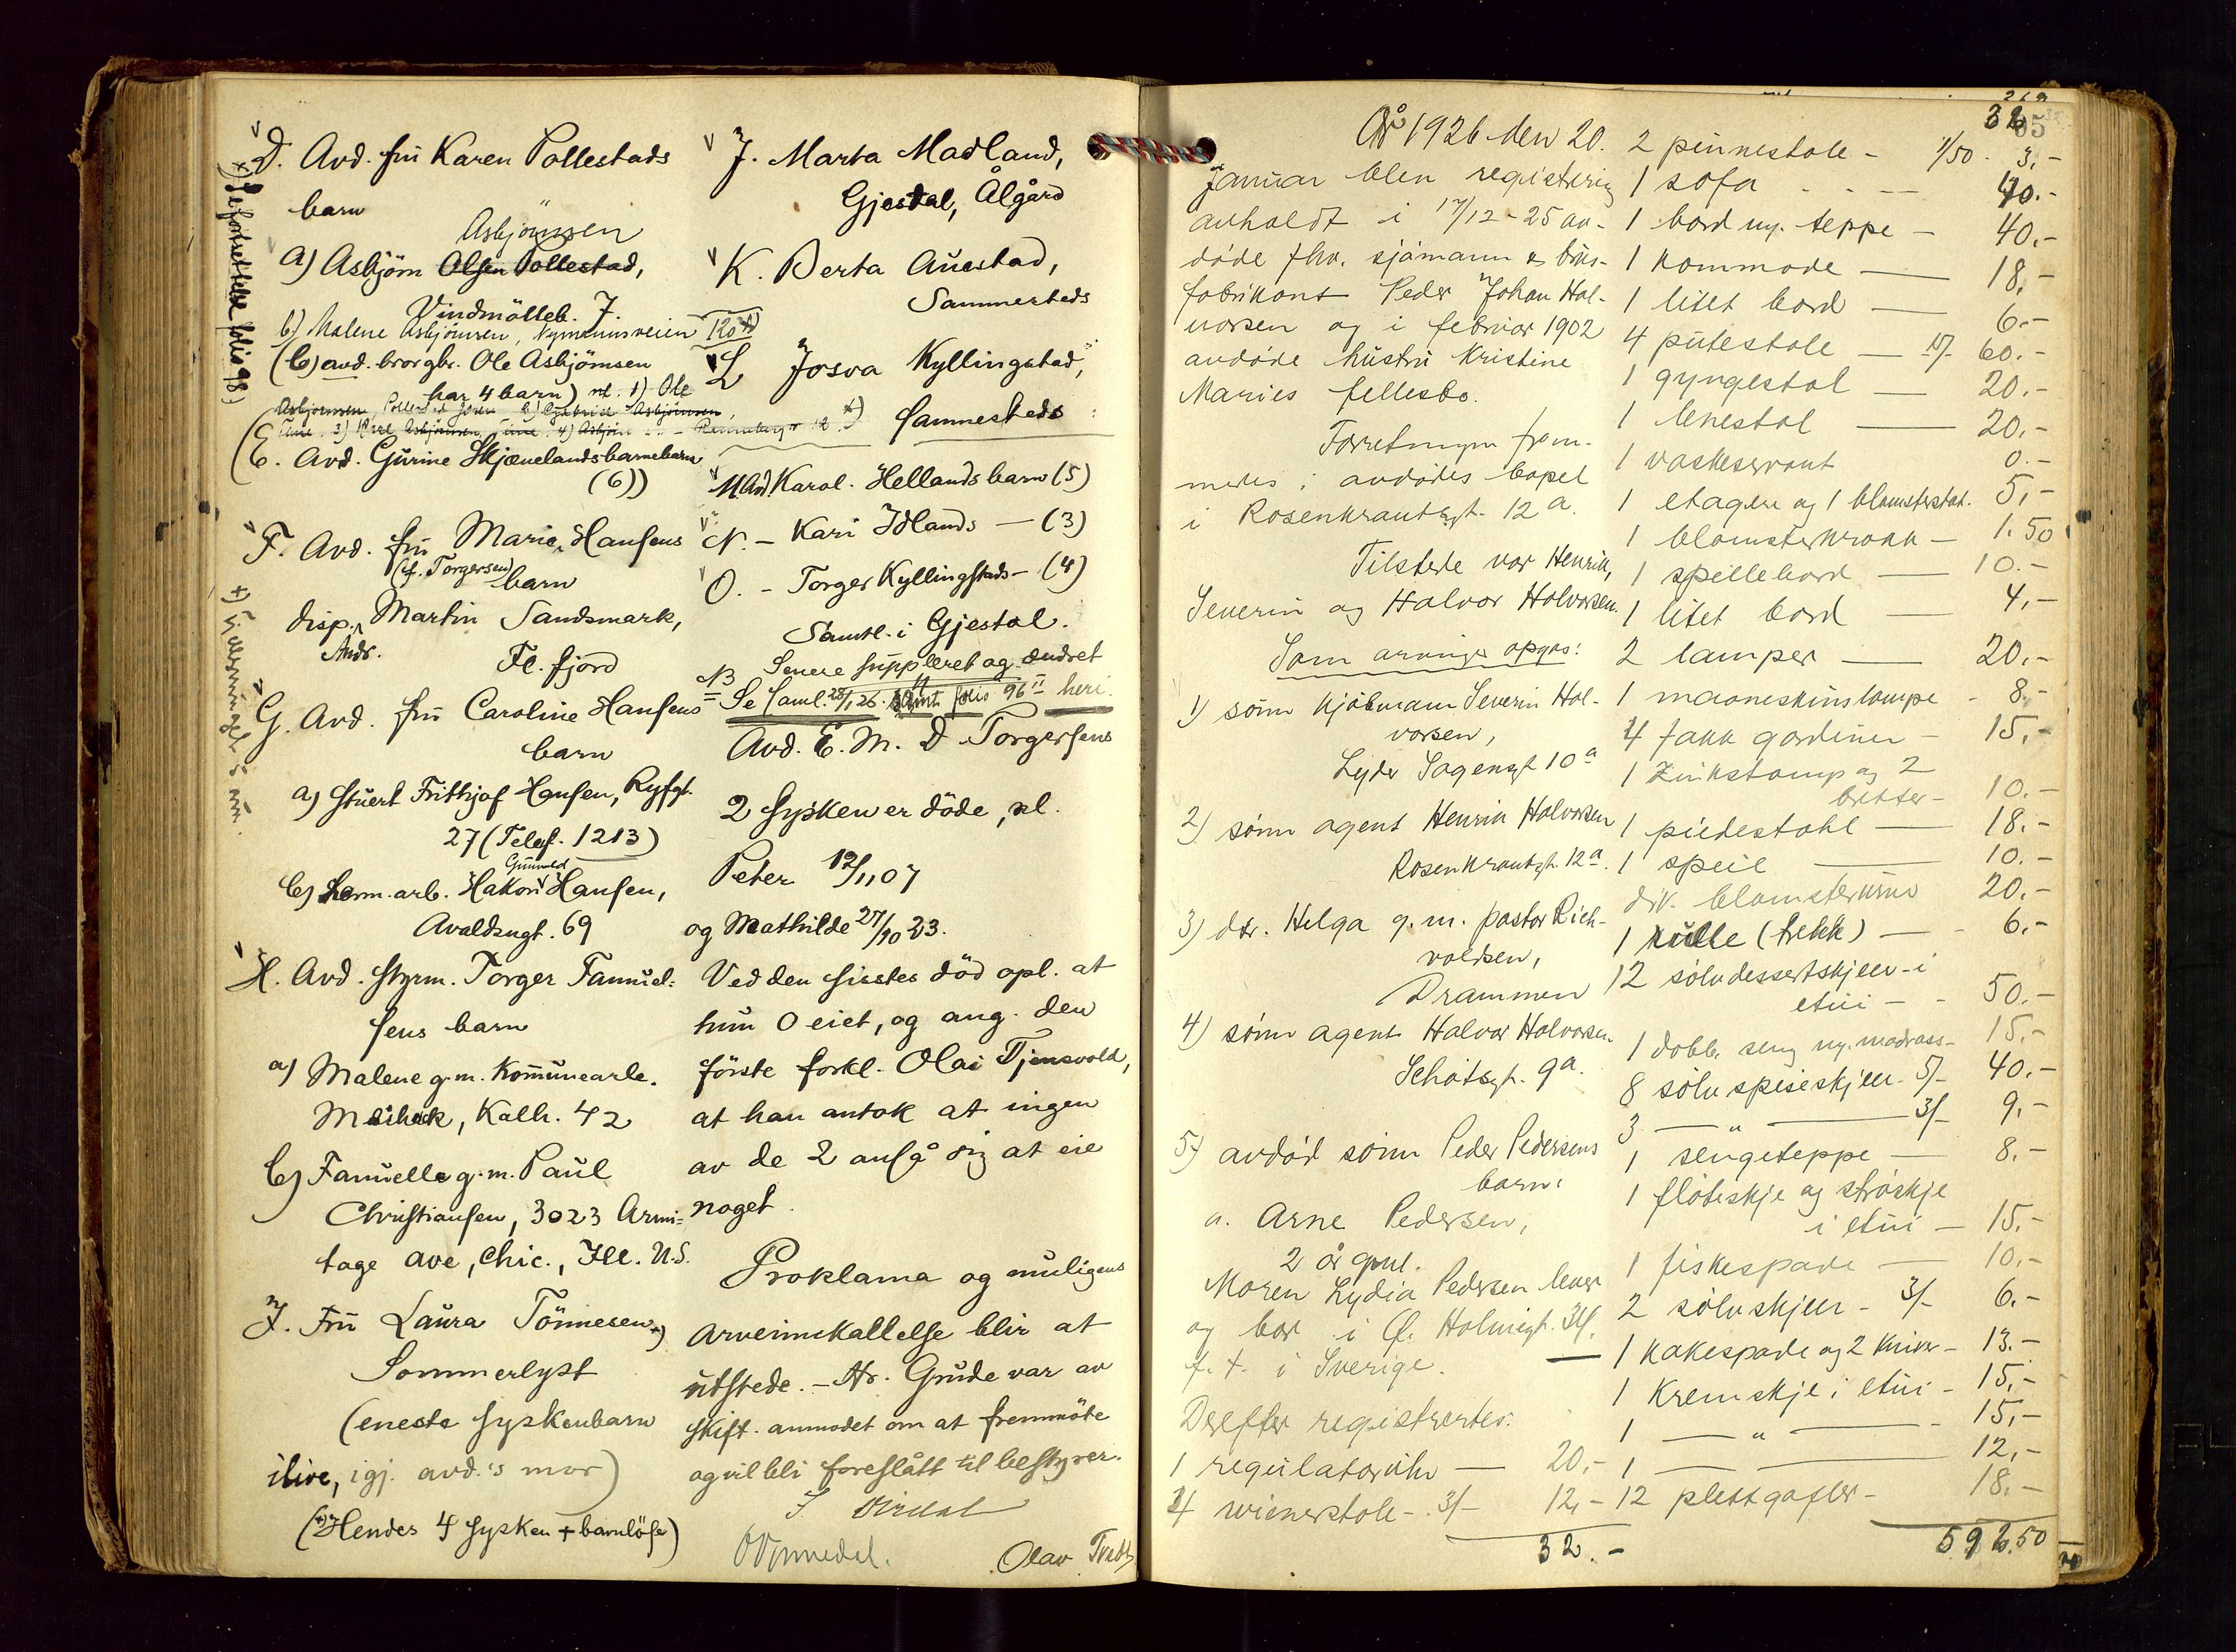 D. Avd. frü Karen Pollestads
barn
Asbjörnsen
a) Asbjörn Olsen Pollestad,
Vindmölleb. 7.
b) Malene Asbjörnsen, Nymannsveien 120
(b) avd. brorgbr. Ole Asbjörnsen
har 4 barn) nl. 1) Ole
Asbjörnsen,
3) Karl Asbjörnsen, Time. 4) Asbjörn
(E. Avd. Gürine Skjævelandsbarnebarn
(6))
F. Avd. frü Marie Hansens
(f. Torgersen) barn
disp. Andr. Martin Sandsmark,
Fl. fjord
G. Avd. frü Caroline Hansens
barn
a) Stuert Frithjof Hansen, Ryfgt.
27 (Telef. 1213)
b) Herm. arb. Hakon Gunvald Hansen,
Avaldsngt. 69
H. Avd. styrm. Torger Fanuel-
sens barn
a) Malene g.m. Kommünearb.
, Kalh. 42
b) Fanuelle g.m. Paul
Christiansen, 3023 Armi-
tage ave, Chic., Ill. U.S.
I. Frü Laüra Tönnesen x)
Sommerlyst
(eneste syskenbarn
ilive, igj. avd.'s mor)
(x) Hendes 4 sysken + barnlöse)
x) Se fortsettelse folio 98)
J. Marta Madland,
Gjesdal, Ålgård
K. Berta Auestad,
Sammesteds
L Josva Kyllingstad,
Sammesteds
M Avd Karol. Hellands barn (5)
N. - Kari Idlands - (3)
O. - Torger Kyllingstads - (4)
Samtl. i Gjestal.
NB Senere süppleret og endret
Se saml. 28/1 26. samt folio 96 II heri.
Avd. E. M. D Torgersens
2 sysken er döde, nl.
Peter 12/11 07
og Mathilde 27/10 23.
Ved den sisstes död opl. at
hün 0 eiet, og ang. den
förste forkl. Olai Tjensvold,
at han antok at ingen
av de 2 anså sig at eie
noget.
Proklama og muligens
arveinnkallelse blir at
utstede. - Hr. Grüde var av
skift. anmodet om at fremmöte
og vil bli foreslått til bestyrer.
Olav
År 1926 den 20.
januar blev registrering
avholdt i 17/12-25 av-
döde fhv. sjömann og brüs-
fabrikant Peder Johan Hal-
vorsen og i februar 1902
avdöde hüstru Kristine
Maries fellesbo.
Forretningen frem-
medes i avdödes bopel
i Rosenkrantzgt. 12 a.
Tilstede var Henrik,
Severin og Halvor Halvorsen.
Som arvinger opgas:
1) sönn kjöbmann Severin Hal-
vorsen,
Lyder Sagengt 10 a
2) sönn agent Henrik Halvorsen
Rosenkrantzgt. 12 a.
3) dtr. Helga g. m. pastor Rich-
voldsen,
Drammen
4) sönn agent Halvor Halvorsen.
Schötzgt. 9 a.
5) avdöd sönn Peder Pedersens
barn:
a. Arne Pedersen,
2 år gml.
Moren Lydia Pedersen lever
og bor i Ö. Holmegt. 34.
f. t. i Sverige.
Derefter registrertes:
1 regülatorühr — 20,-
4 wienerstole - 3/- 12,-
32.-
2 pinnestole - 1/50 - 3,-
1 sofa - 40.-
1 bord m. teppe - 40.-
1 kommode — 18,-
1 litet bord — 6.-
4 pütestole — 15/- 60.-
1 gyngestol — 20.-
1 lenestol — 20.-
1 vaskeservant 0.-
1 etagere og 1 blomsterstat. 5,-
1 blomsterkrakk - 1.50
1 spillebord — 10.-
1 litet bord — 4,-
2 lamper — 20.-
1 maaneskinslampe - 8.-
4 fakk gardiner - 15,-
1 Zinkstamp og 2
bøtter - 10.-
1 piedestahl — 18.-
1 speil — 10.-
div. blomsterürner 20.-
1 külle (trekk) — 6.-
12 sölvdessertskjeer i
etüi - 50.-
1 dobb. seng m. madrass - 15.-
8 sölv spiseskjeer 5/- 40.-
3 — " — 3/- 9.-
1 sengeteppe — 8.-
1 flöteskje og ströskje
i etüi - 15.-
1 fiskespade — 10.-
2 sölvskjeer - 3/- 6.-
1 kakespade og 2 kniver - 13.-
1 Kremskje i etüi - 15,-
1 — " — 15,-
1 — — 12,-
12 plettgafler - 18.-
592.50